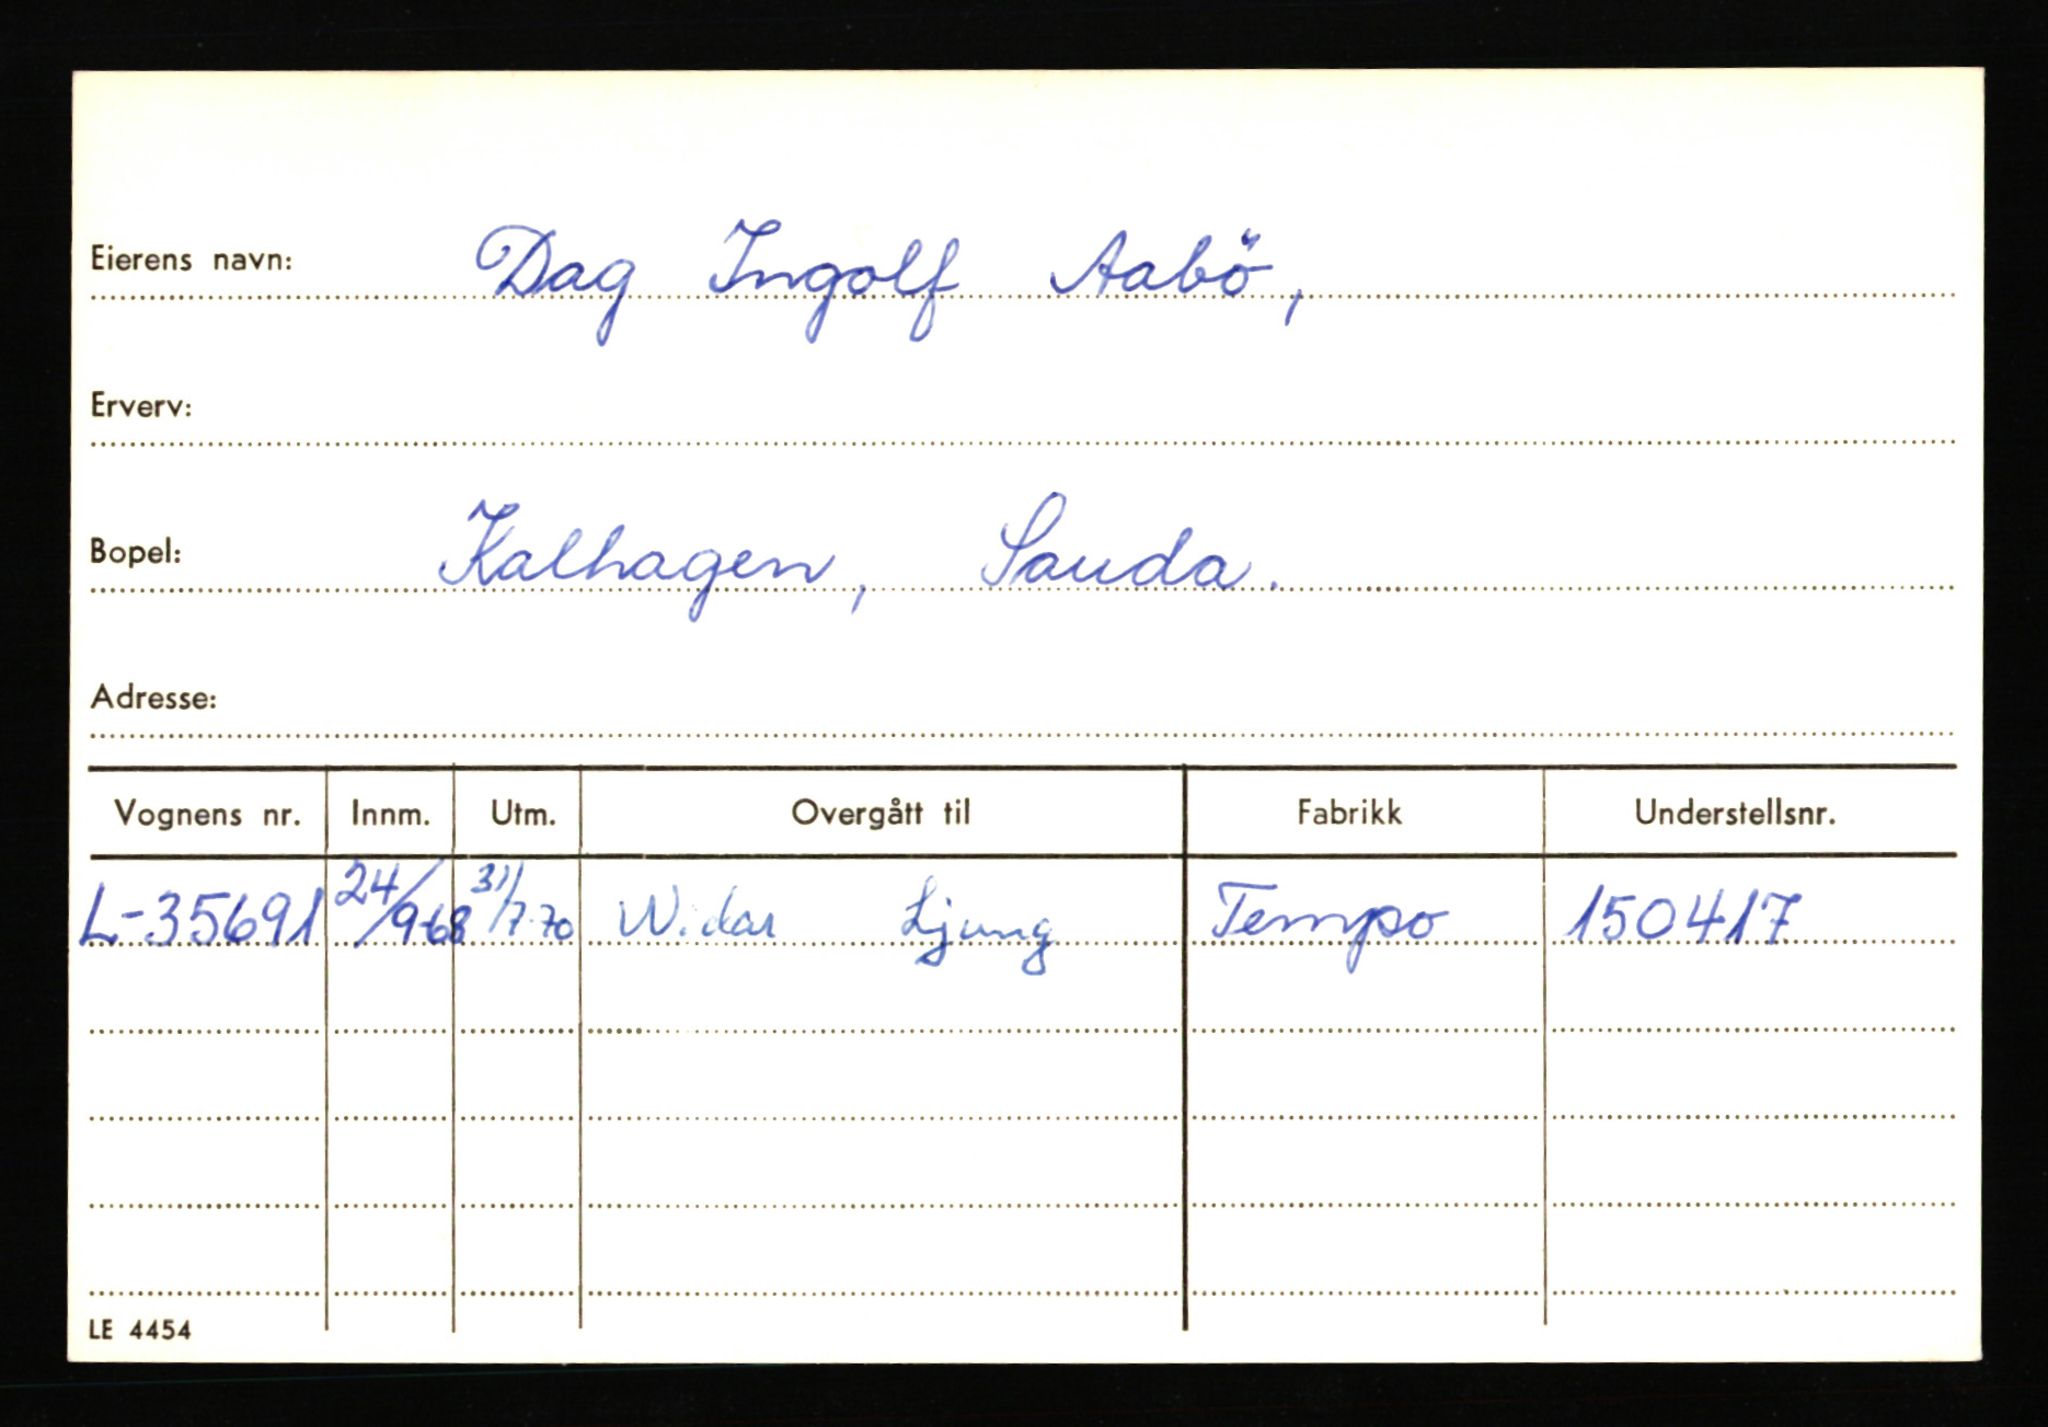 Eierens navn: Dag Ingolf Aabö,
Erverv:
Bopel: Kalhagen, Sauda.
Adresse:
Vognens nr. Innm. Utm. Overgått til Fabrikk Understellsnr.
L-35691 24/9-68 31/7-70 Widar Ljung Tempo 150417
LE 4454